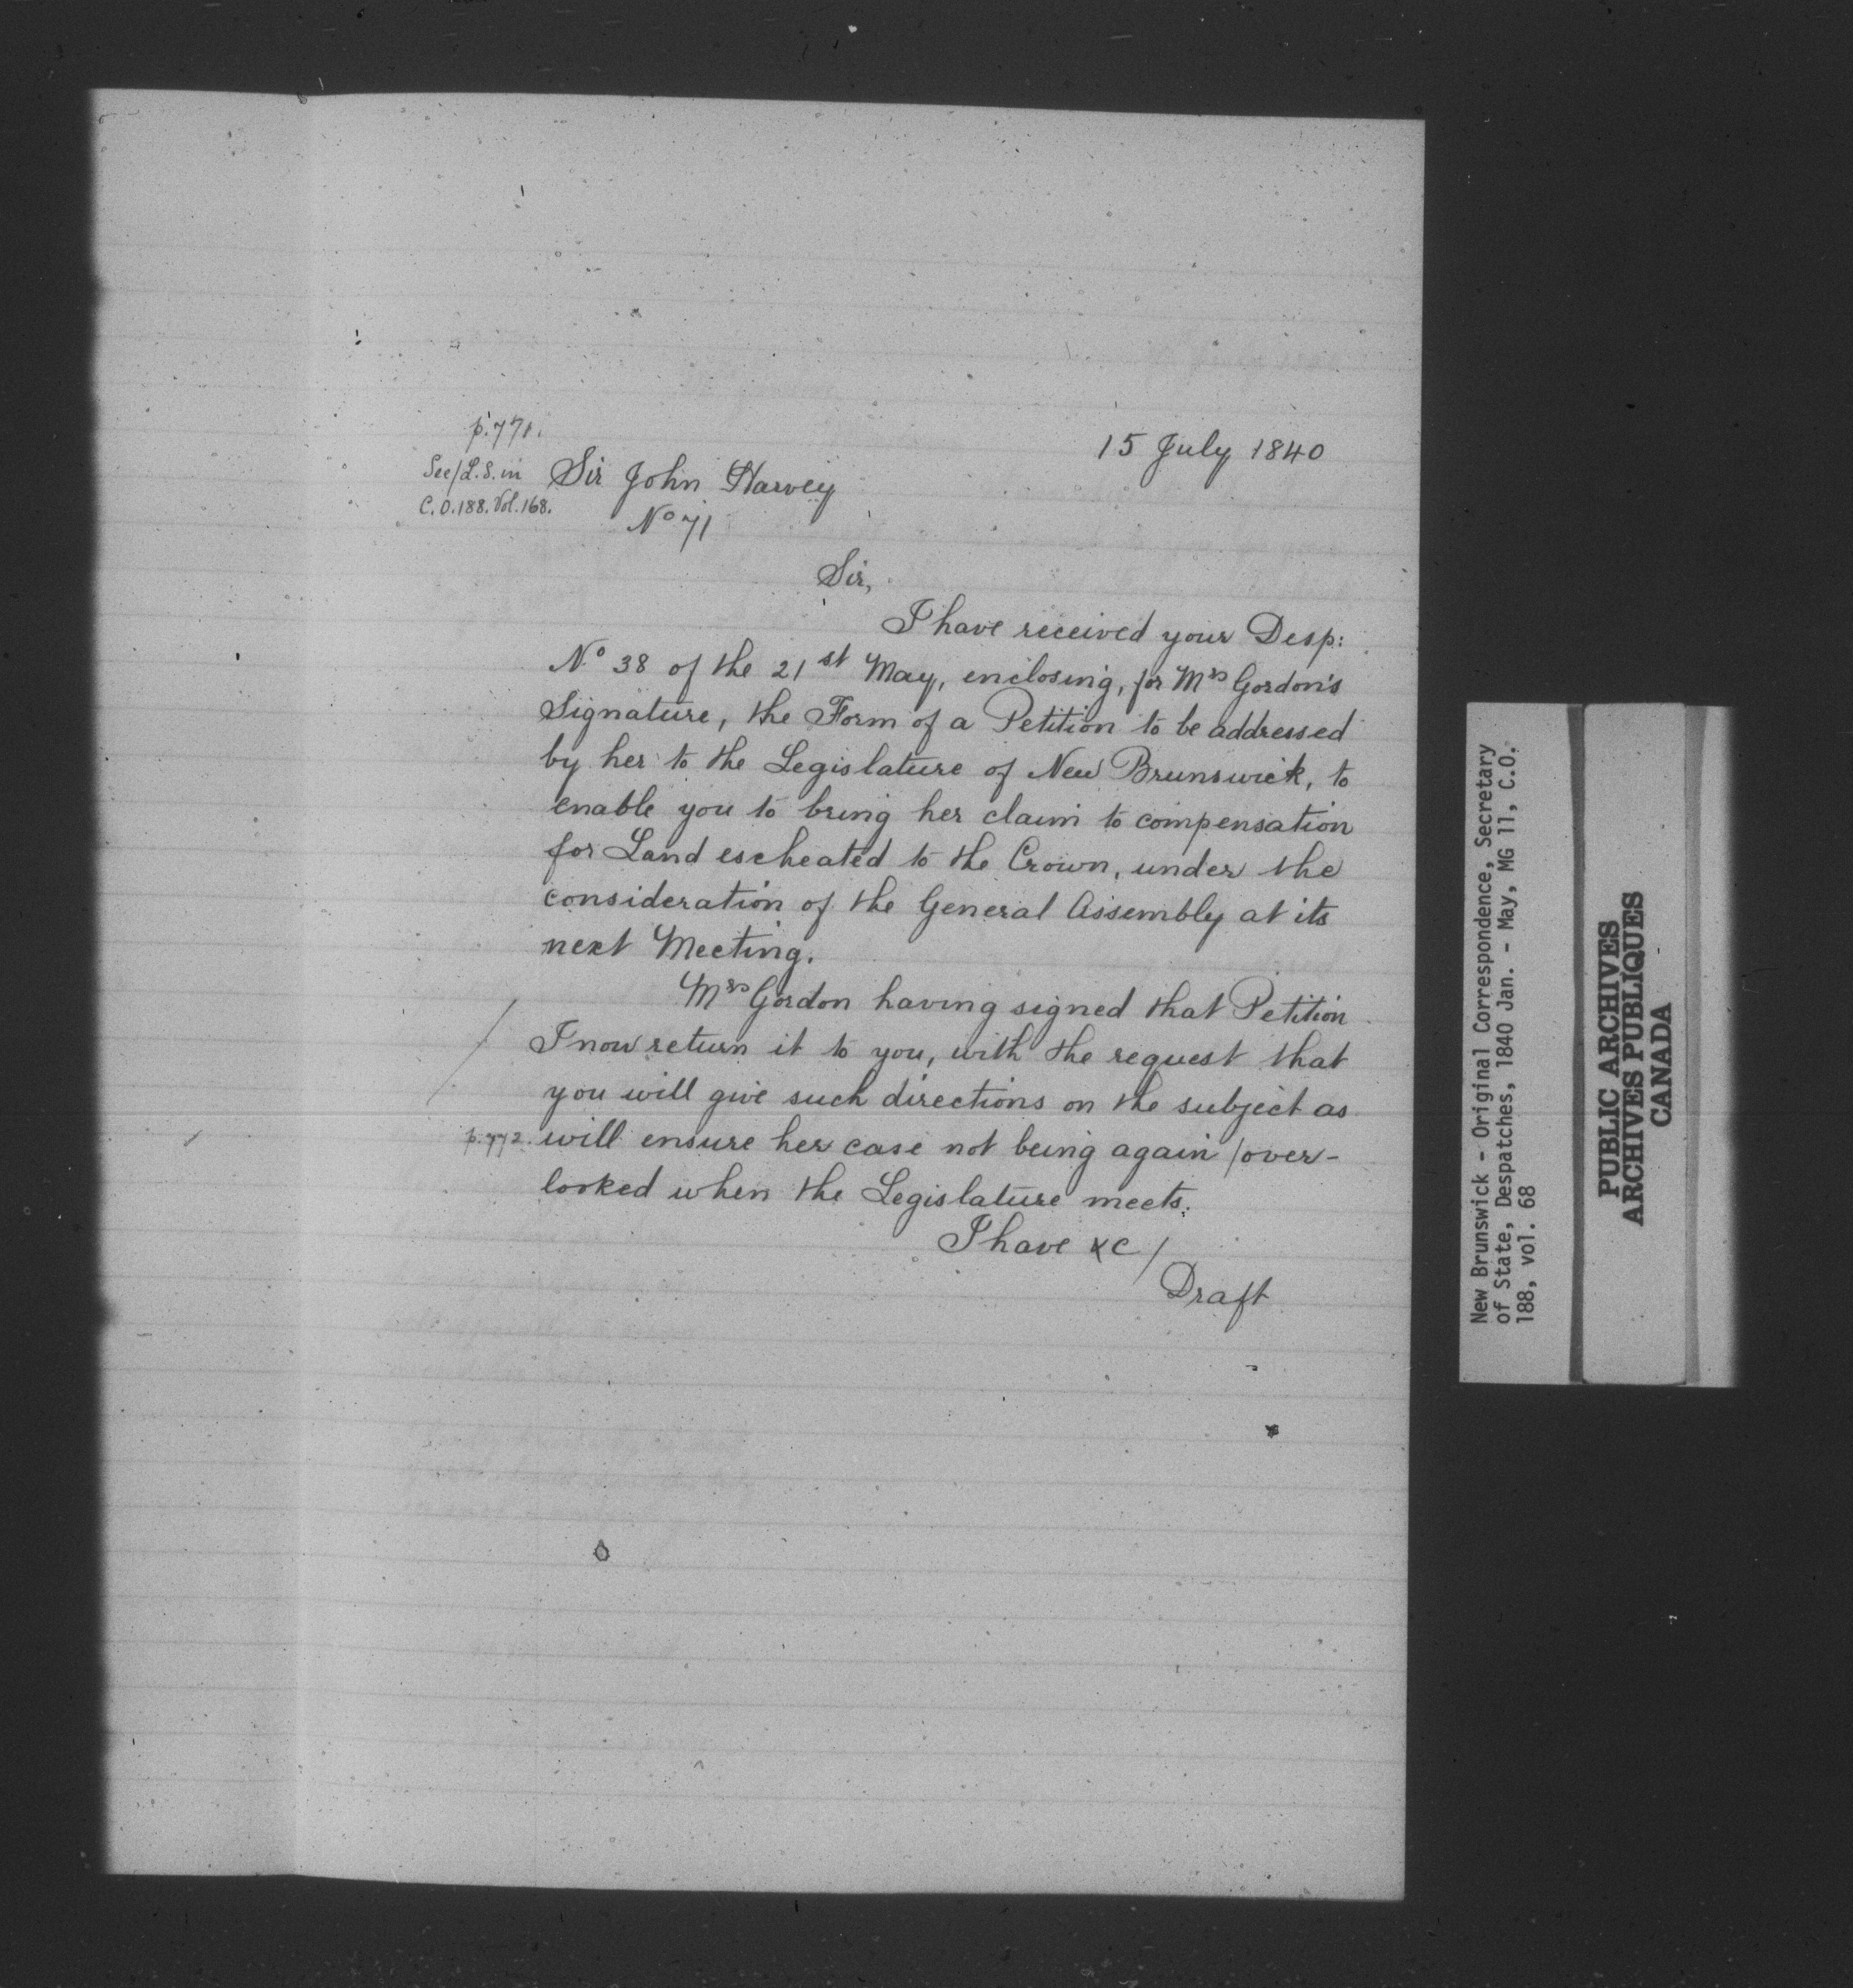 p.771.
15 July 1840
See/L.S. in
C.O.188.Vol.168.
Sir John Harvey
No 71
Sir,
I have received your Desp:
No 38 of the 21st May, enclosing, for Mrs Gordon's
Signature, the Form of a Petition to be addressed
by her to the Legislature of New Brunswick, to
enable you to bring her claim to compensation
for Land escheated to the Crown, under the
consideration of the General Assembly at its
next Meeting.
Mrs Gordon having signed that Petition
I now return it to you, with the request that
you will give such directions on the subject as
p.772. will ensure her case not being again /over-
looked when the Legislature meets.
I have &c/
Draft
New Brunswick - Original Correspondence, Secretary
of State, Despatches, 1840 Jan. - May, MG 11, C.O.
188, vol. 68
PUBLIC ARCHIVES
ARCHIVES PUBLIQUES
CANADA